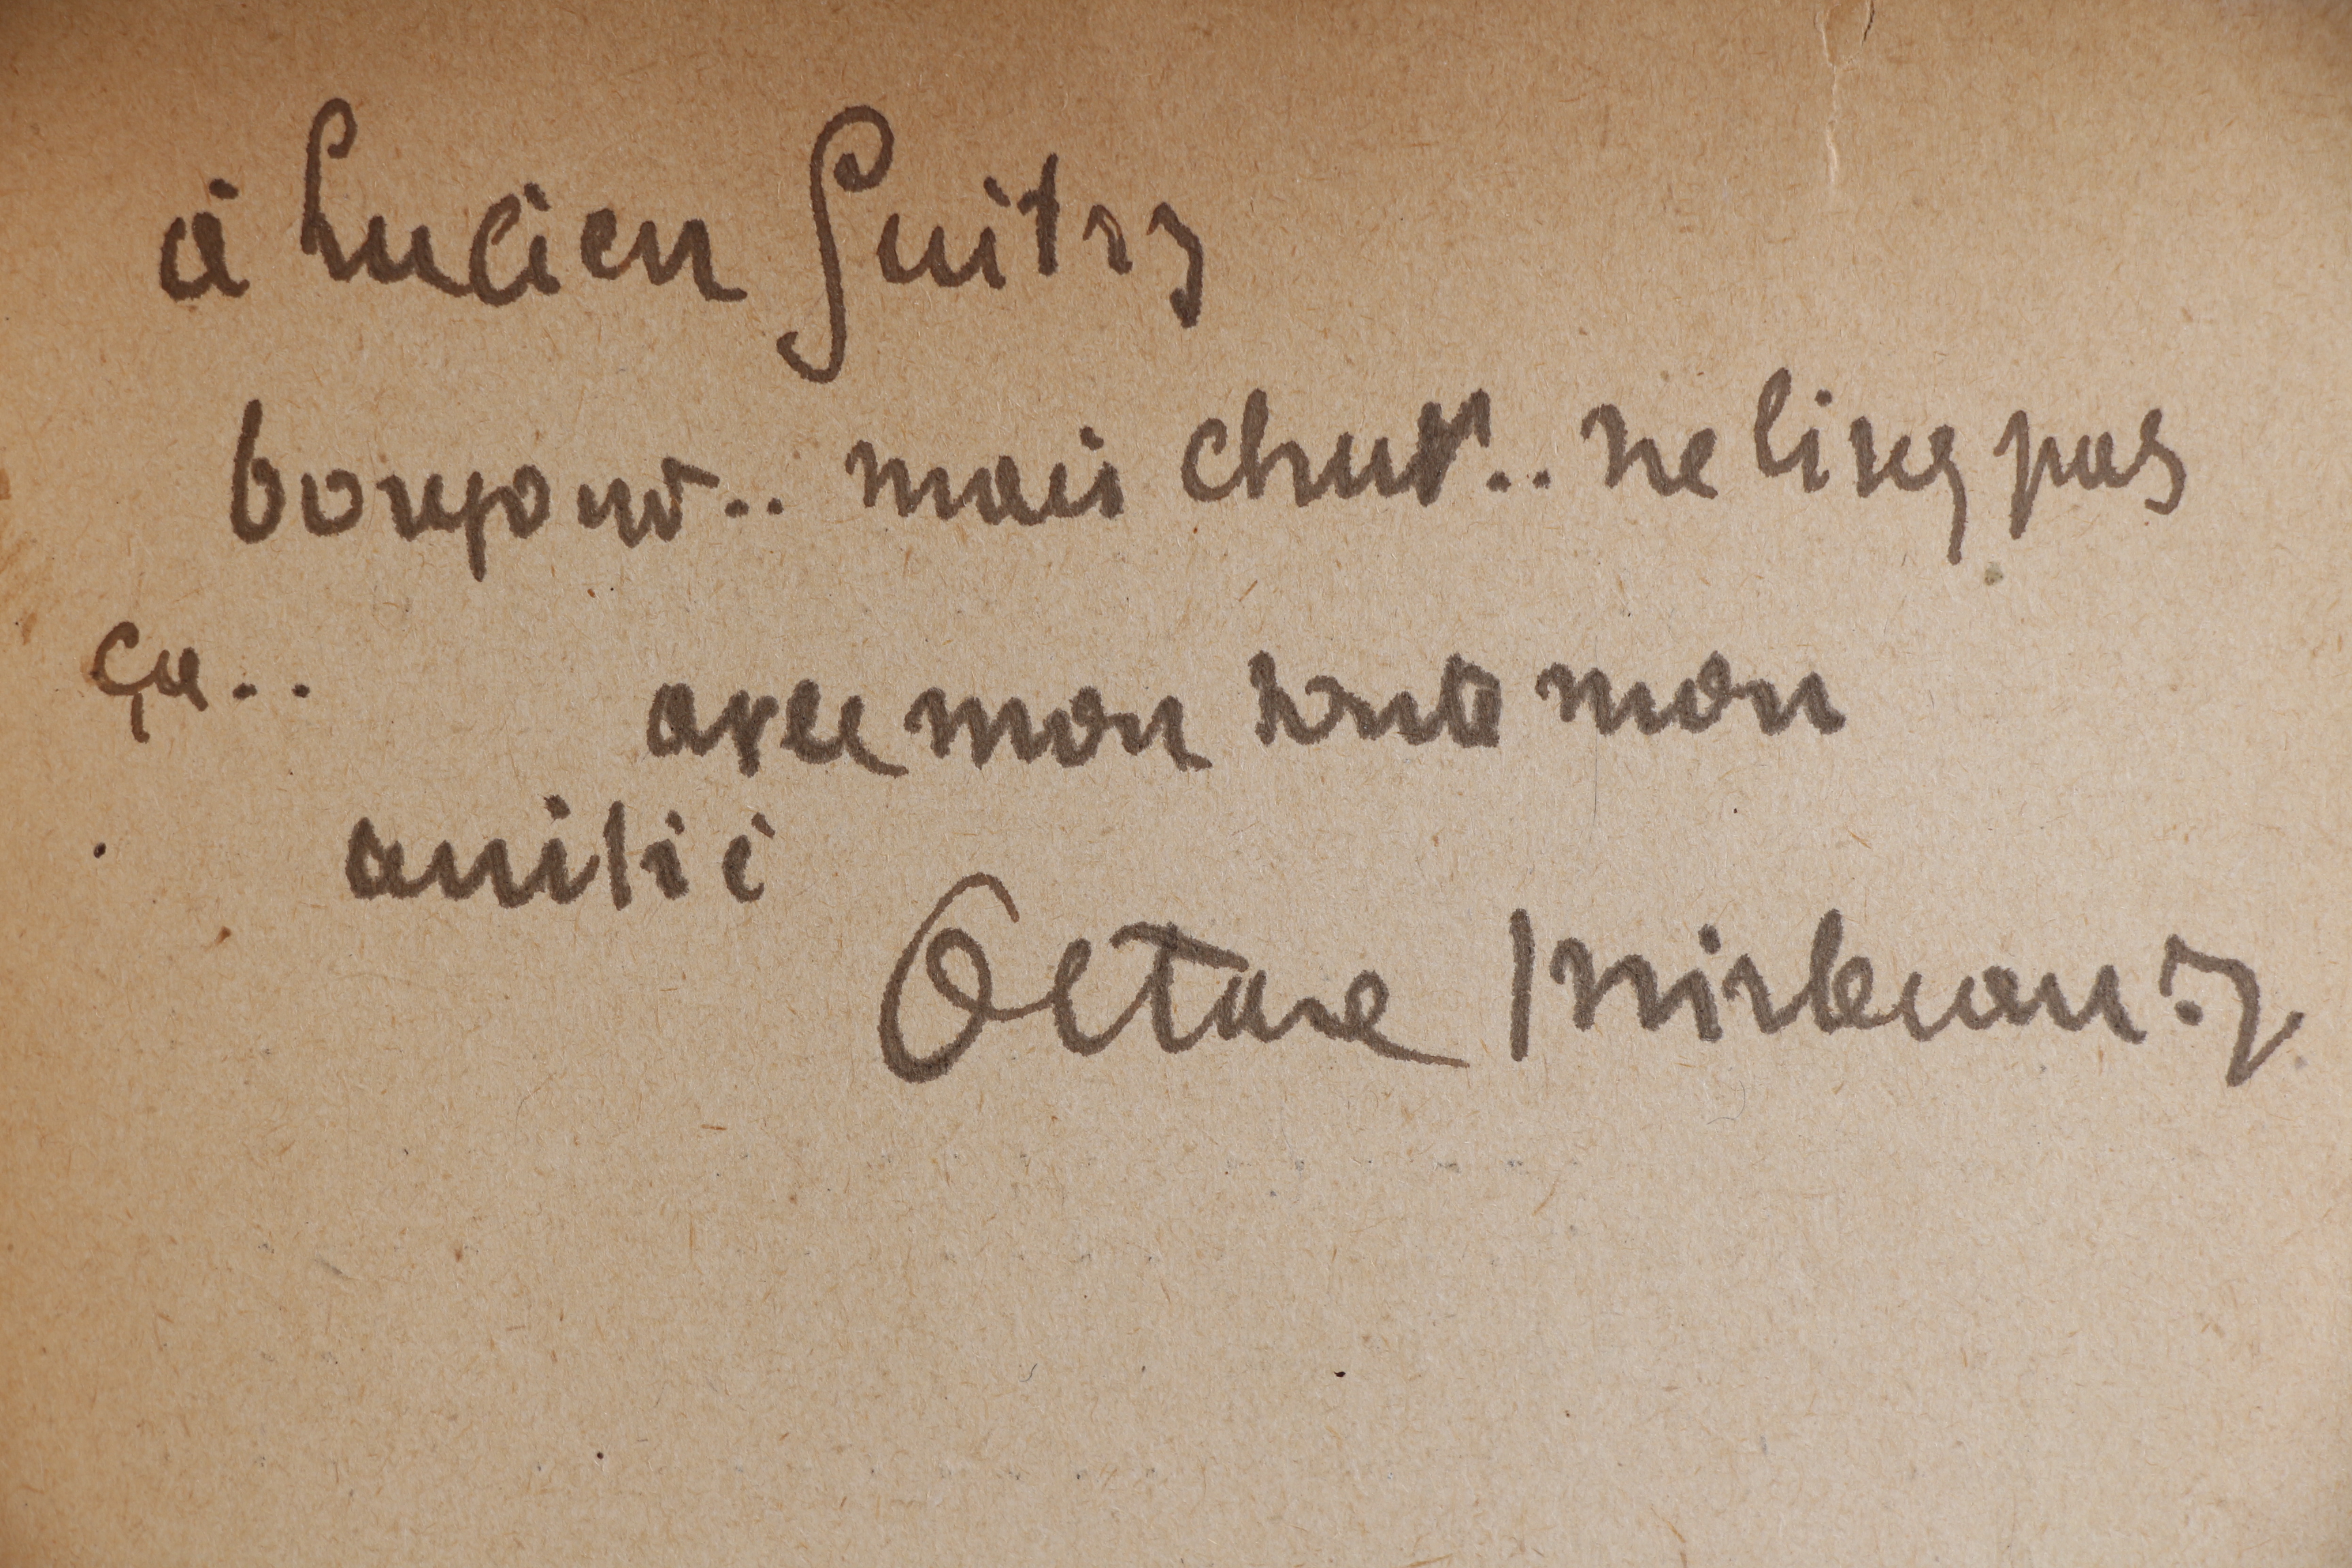 à Lucien Guitry
bonjour.. mais chut.. ne lisez pas
ça..
avec mon toute mon
amitié
Octave Mirbeau